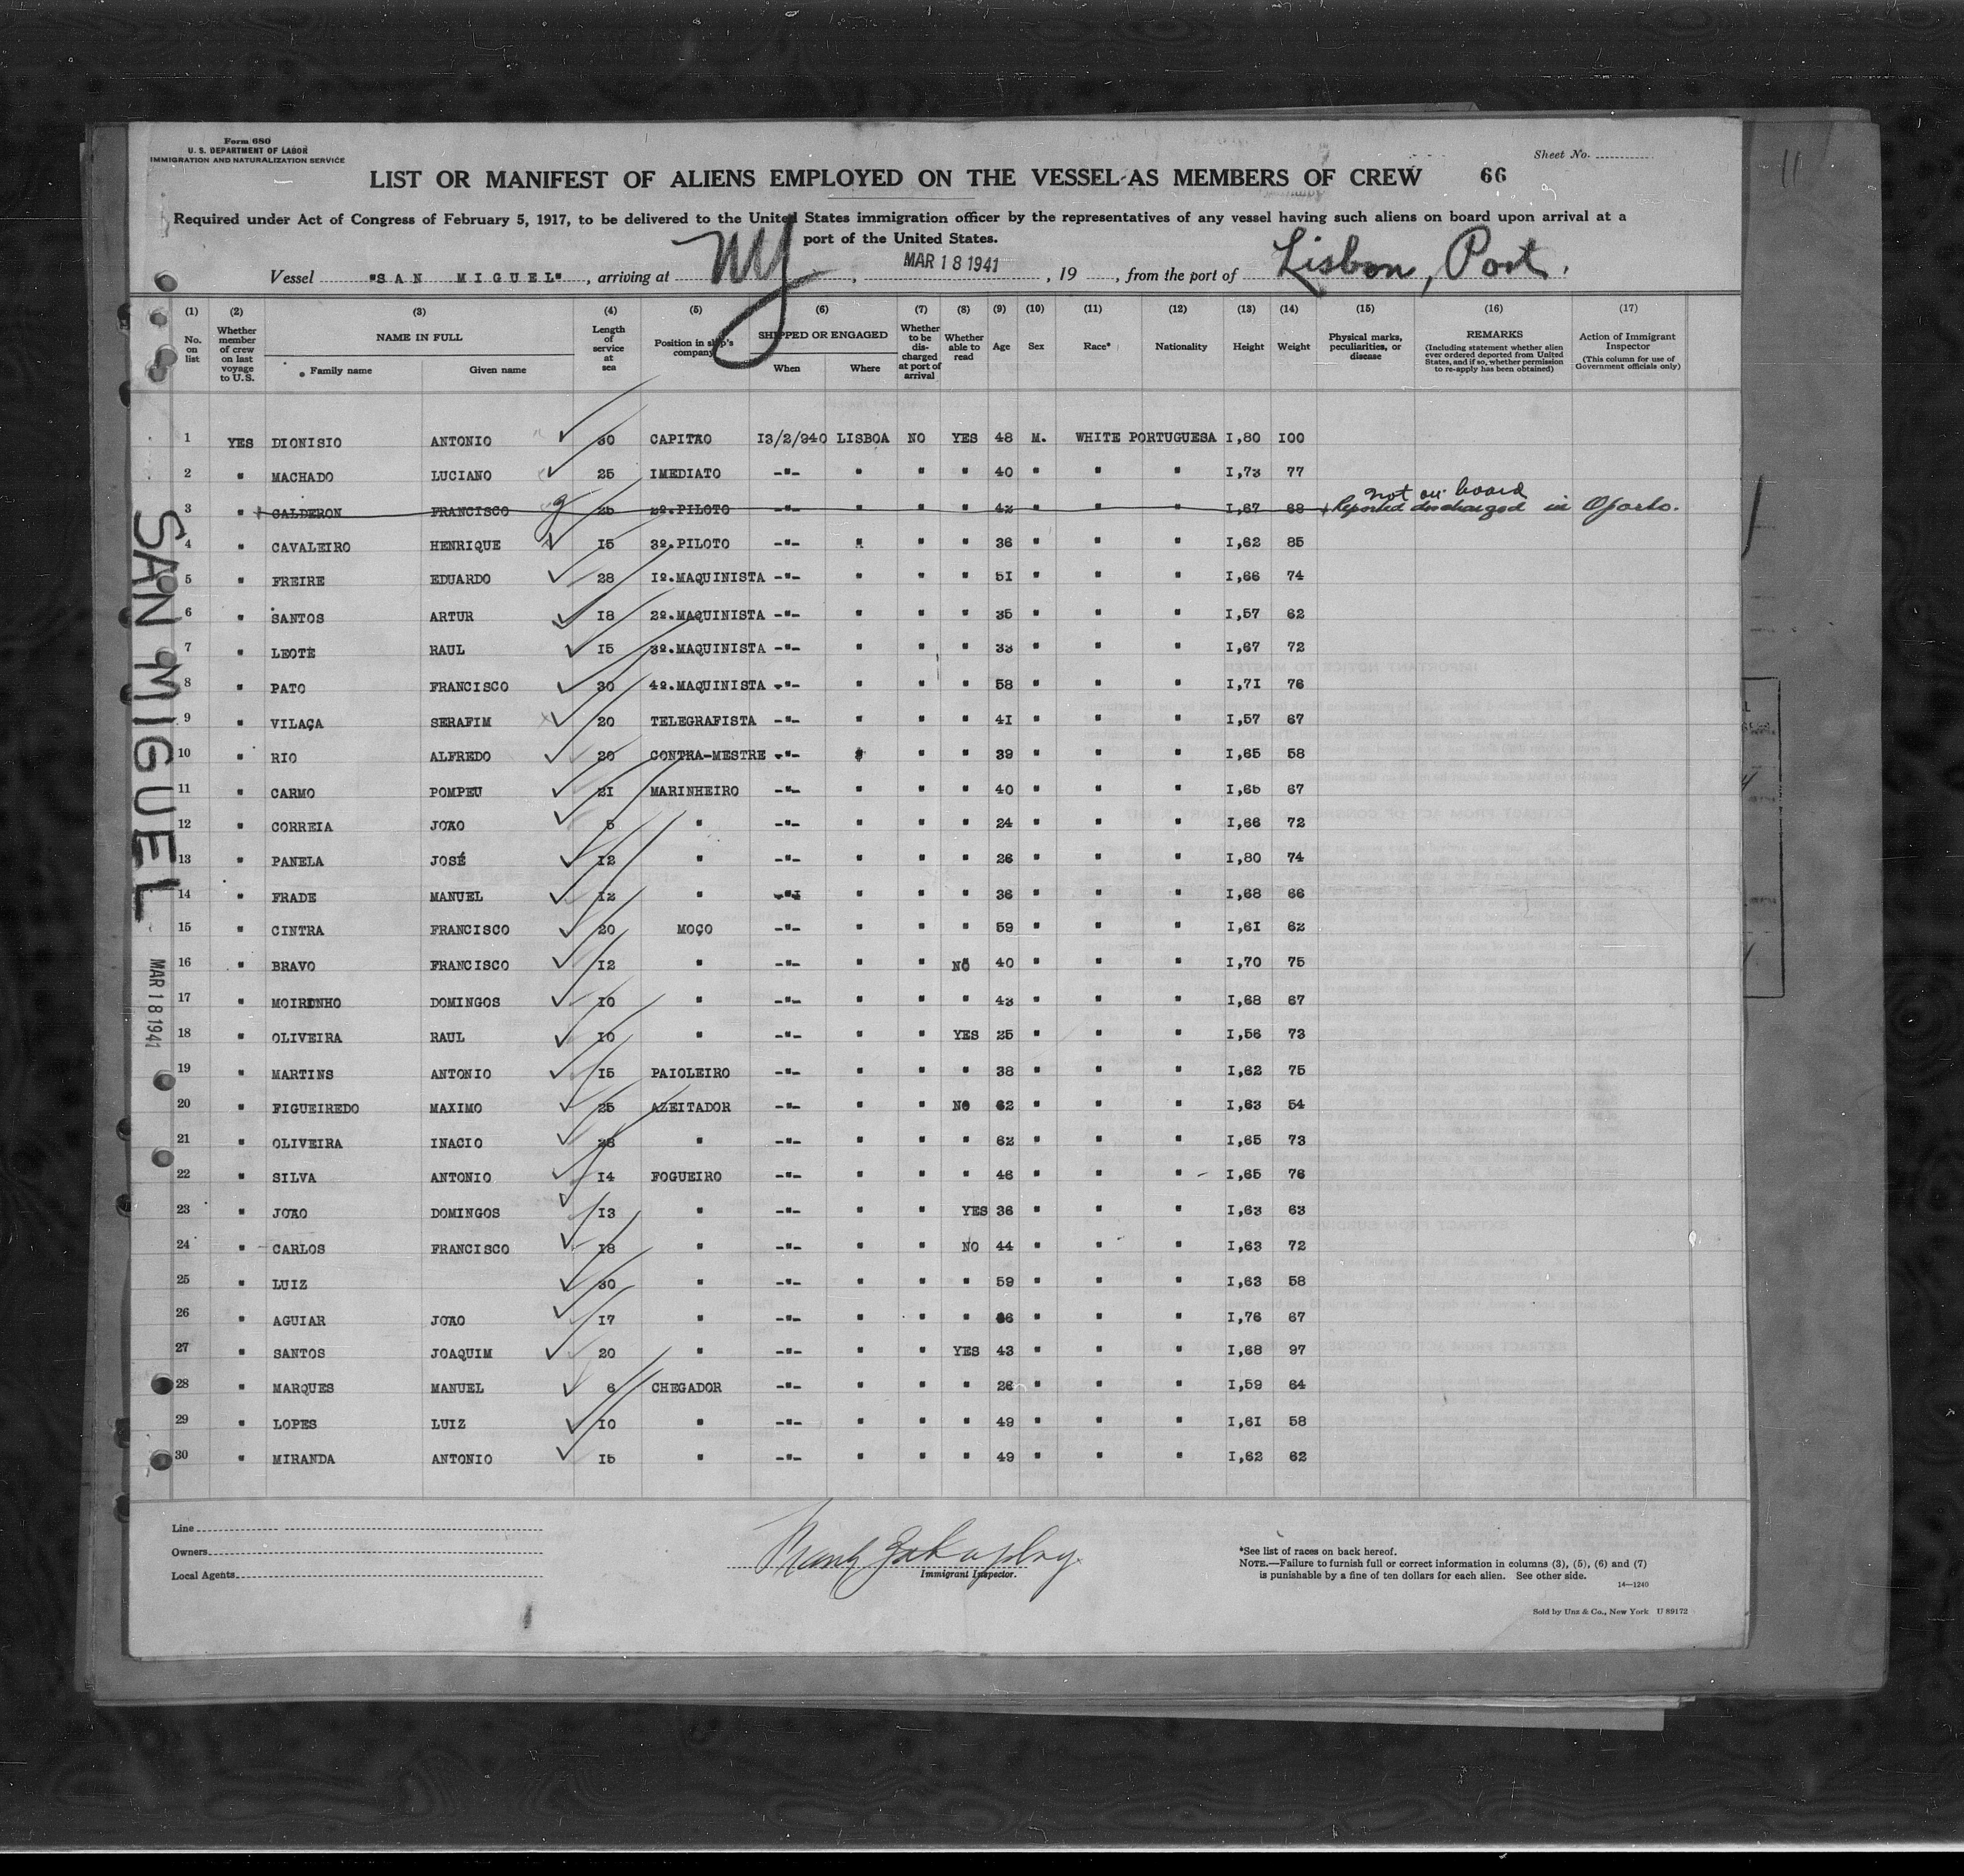 Form 680
U. S. DEPARTMENT OF LABOR
IMMIGRATION AND NATURALIZATION SERVICE
Sheet No.
11
LIST OR MANIFEST OF ALIENS EMPLOYED ON THE VESSEL AS MEMBERS OF CREW 66
Required under Act of Congress of February 5, 1917, to be delivered to the United States immigration officer by the representatives of any vessel having such aliens on board upon arrival at a
port of the United States.
Vessel "SAN MIGUEL", arriving at NY, MAR 18 1941, 19 , from the port of Lisbon, Port.
(1) (2) (3) (4) (5) (6) (7) (8) (9) (10) (11) (12) (13) (14) (15) (16) (17)
No. on list
Whether member of crew on last voyage to U.S.
NAME IN FULL
Family name Given name
Length of service at sea
Position in ship's company
SHIPPED OR ENGAGED
When Where
Whether to be discharged at port of arrival
Whether able to read
Age Sex Race* Nationality Height Weight
Physical marks, peculiarities, or disease
REMARKS
(Including statement whether alien ever ordered deported from United States, and if so, whether permission to re-apply has been obtained)
Action of Immigrant Inspector
(This column for use of Government officials only)
1 YES DIONISIO ANTONIO 30 CAPITAO I3/2/940 LISBOA NO YES 48 M. WHITE PORTUGUESA I,80 I00
2 " MACHADO LUCIANO 25 IMEDIATO -"- " " " 40 " " " I,73 77
not on board
3 " CALDERON FRANCISCO 2º.PILOTO -"- " " " 42 " " " I,67 68 Reported discharged in Oporto.
4 " CAVALEIRO HENRIQUE I5 3º.PILOTO -"- " " " 36 " " " I,62 85
5 " FREIRE EDUARDO 28 Iº.MAQUINISTA -"- " " " 5I " " " I,66 74
6 " SANTOS ARTUR I8 2º.MAQUINISTA -"- " " " 35 " " " I,57 62
7 " LEOTE RAUL I5 3º.MAQUINISTA -"- " " " 33 " " " I,67 72
8 " PATO FRANCISCO 30 4º.MAQUINISTA -"- " " " 58 " " " I,7I 76
9 " VILAÇA SERAFIM 20 TELEGRAFISTA -"- " " " 4I " " " I,57 67
10 " RIO ALFREDO 20 CONTRA-MESTRE -"- " " " 39 " " " I,65 58
11 " CARMO POMPEU 2I MARINHEIRO -"- " " " 40 " " " I,65 67
12 " CORREIA JOAO 5 " -"- " " " 24 " " " I,66 72
13 " PANELA JOSÉ I2 " -"- " " " 26 " " " I,80 74
14 " FRADE MANUEL I2 " -"- " " " 36 " " " I,68 66
15 " CINTRA FRANCISCO 20 MOÇO -"- " " " 59 " " " I,6I 62
16 " BRAVO FRANCISCO I2 " -"- " " NO 40 " " " I,70 75
17 " MOIRINHO DOMINGOS I0 " -"- " " " 43 " " " I,68 67
18 " OLIVEIRA RAUL I0 " -"- " " YES 25 " " " I,56 73
19 " MARTINS ANTONIO I5 PAIOLEIRO -"- " " " 38 " " " I,62 75
20 " FIGUEIREDO MAXIMO 25 AZEITADOR -"- " " NO 62 " " " I,63 54
21 " OLIVEIRA INACIO 28 " -"- " " " 62 " " " I,65 73
22 " SILVA ANTONIO I4 FOGUEIRO -"- " " " 46 " " " I,65 76
23 " JOAO DOMINGOS I3 " -"- " " YES 36 " " " I,63 63
24 " CARLOS FRANCISCO I8 " -"- " " NO 44 " " " I,63 72
25 " LUIZ 30 " -"- " " " 59 " " " I,63 58
26 " AGUIAR JOAO I7 " -"- " " " " " " I,76 67
27 " SANTOS JOAQUIM 20 " -"- " " YES 43 " " " I,68 97
28 " MARQUES MANUEL 6 CHEGADOR -"- " " " 26 " " " I,59 64
29 " LOPES LUIZ I0 " -"- " " " 49 " " " I,6I 58
30 " MIRANDA ANTONIO I5 " -"- " " " 49 " " " I,62 62
SAN MIGUEL
MAR 18 1941
Line
Owners
Local Agents
Immigrant Inspector.
*See list of races on back hereof.
NOTE.—Failure to furnish full or correct information in columns (3), (5), (6) and (7)
is punishable by a fine of ten dollars for each alien. See other side.
14—1240
Sold by Unz & Co., New York U 89172